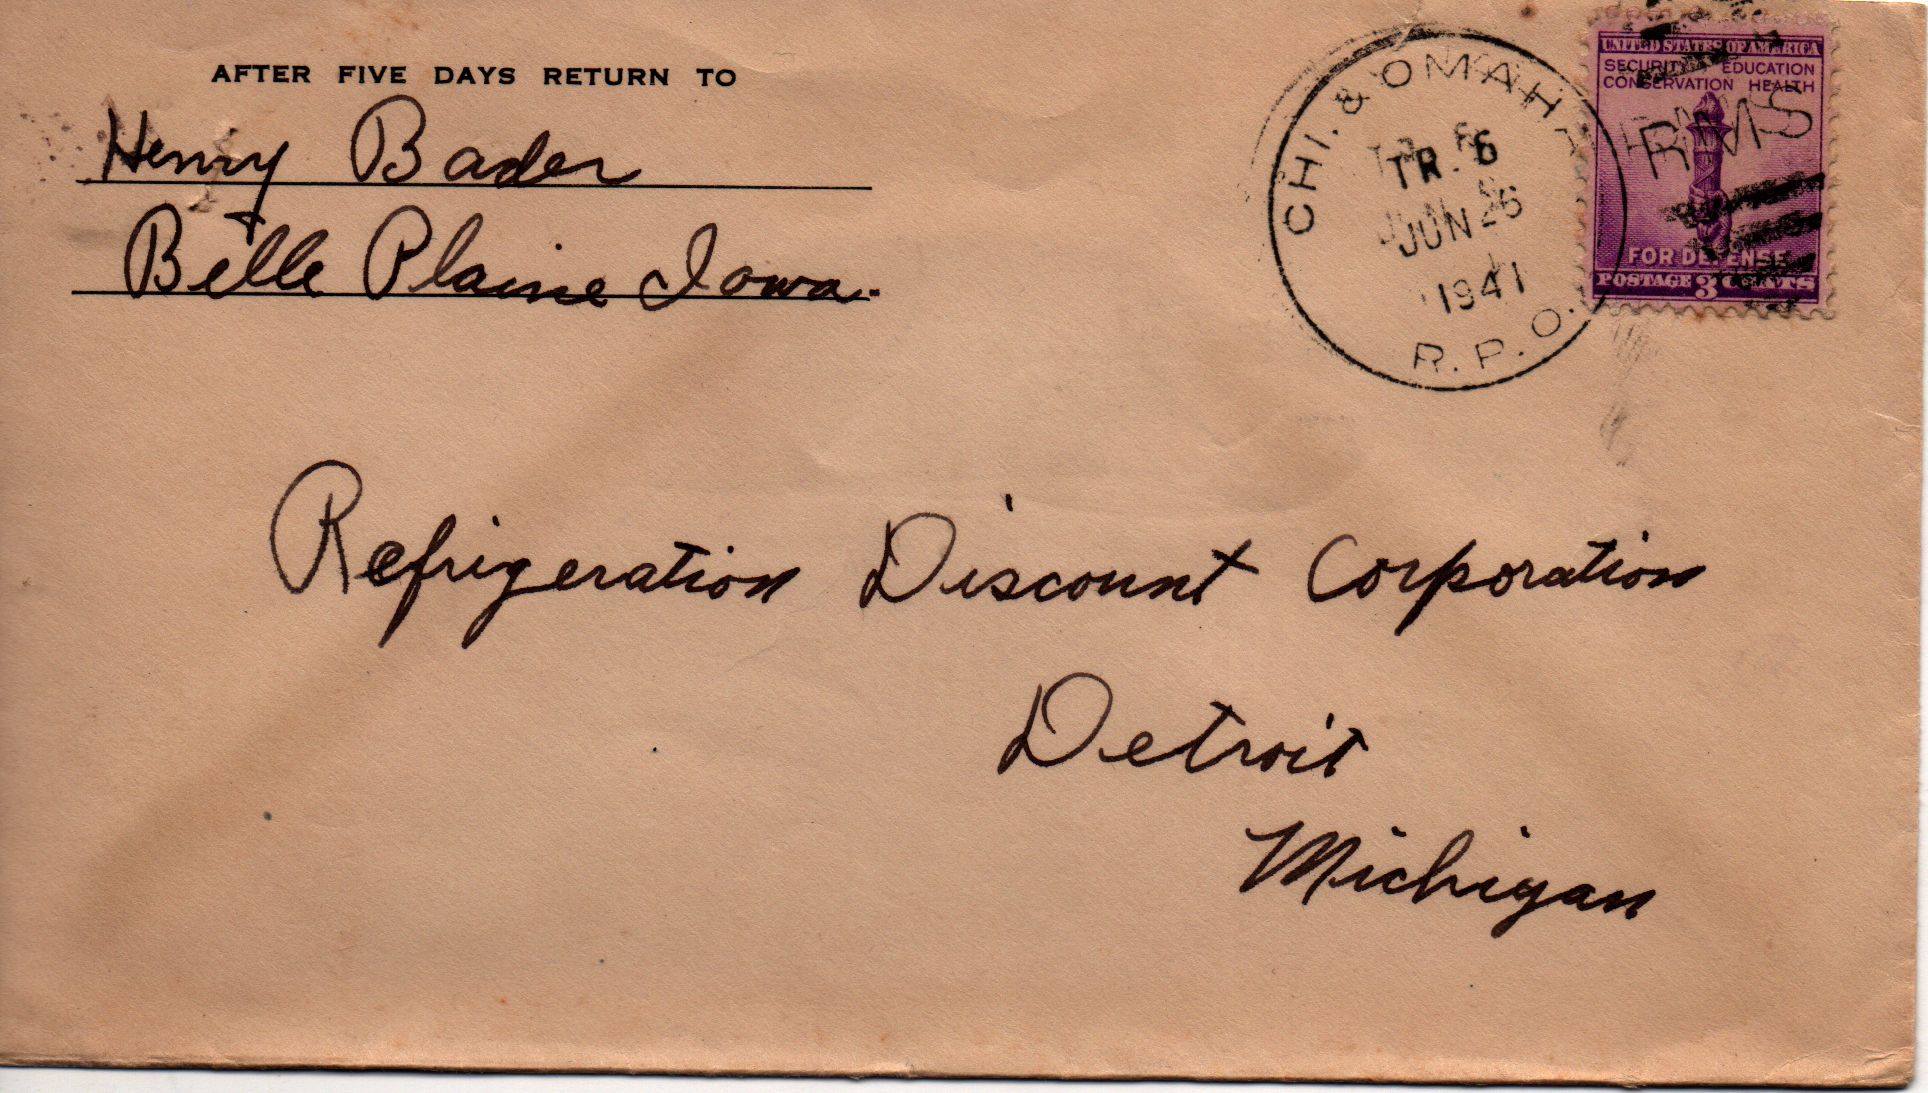 AFTER FIVE DAYS RETURN TO
Henry Bader
Belle Plaine Iowa.
CHI. & OMAHA
TR. 6
JUN 26
1941
R.P.O.
RMS
UNITED STATES OF AMERICA
SECURITY EDUCATION
CONSERVATION HEALTH
FOR DEFENSE
POSTAGE 3 CENTS
Refrigeration Discount Corporation
Detroit
Michigan